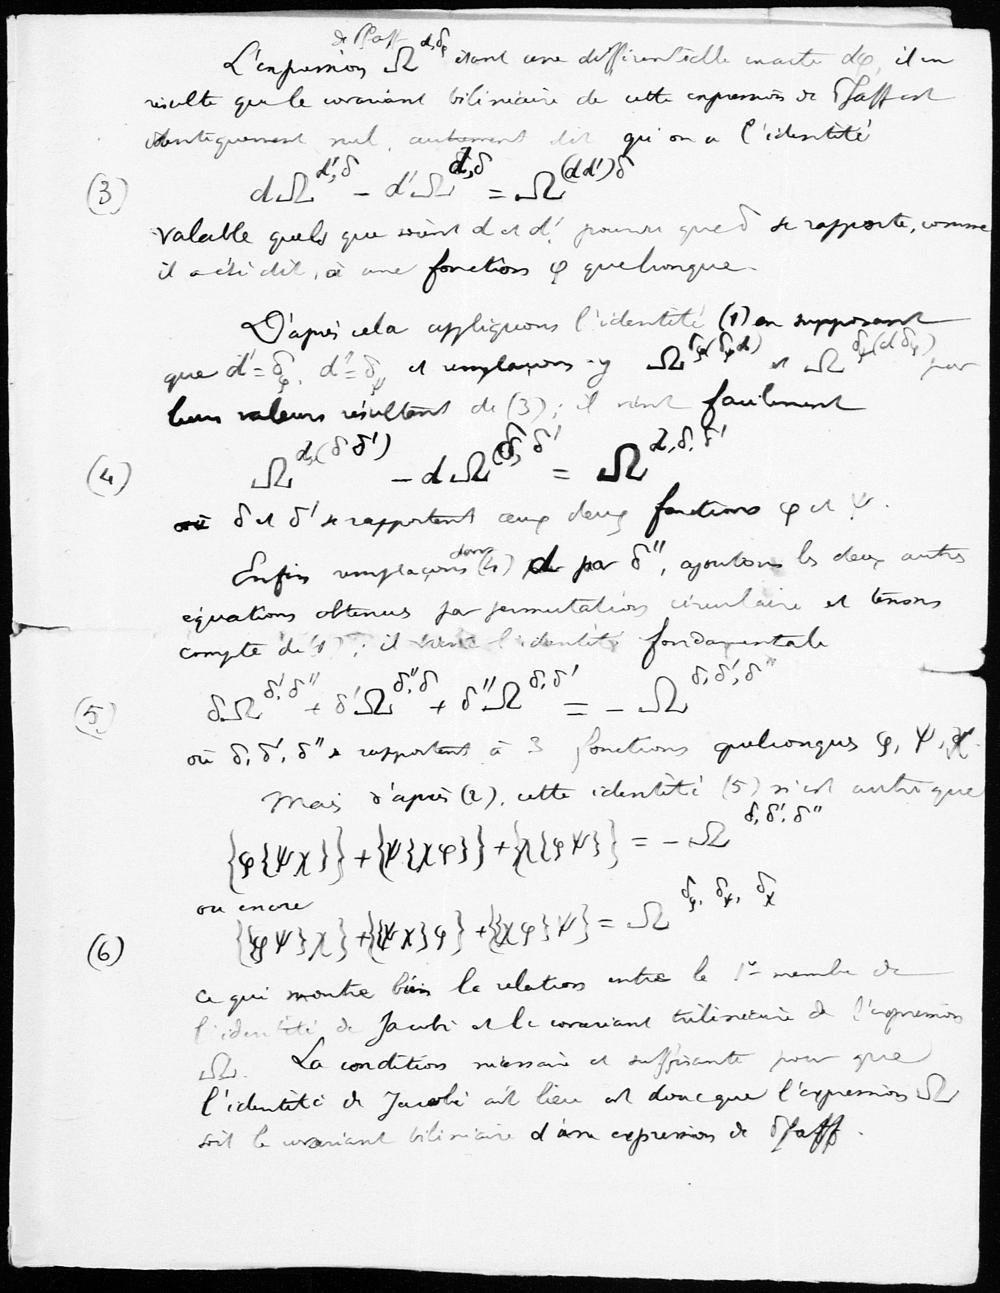 de Pfaff
L'expression Ω^{d,δφ} étant une différentielle exacte dφ, il en
résulte que le covariant bilinéaire de cette expression de Pfaff est
identiquement nul, autrement dit qu'on a l'identité
(3) dΩ^{d',δ} - d'Ω^{d,δ} = Ω^{(dd')δ}
valable quels que soient d et d', pourvu que δ se rapporte, comme
il a été dit, à une fonction φ quelconque.
D'après cela appliquons l'identité (1) en supposant
que d' = δ_φ, d'' = δ_ψ et remplaçons-y Ω^{δφ(δψ d)} et Ω^{δψ(d δφ)} par
leurs valeurs résultant de (3) ; il vient facilement
(4) Ω^{d,(δ δ')} - dΩ^{δ,δ'} = Ω^{d,δ,δ'}
où δ et δ' se rapportent aux deux fonctions φ et ψ.
Enfin remplaçons dans (4) d par δ'', ajoutons les deux autres
équations obtenues par permutation circulaire et tenons
compte de (1) ; il vient l'identité fondamentale
(5) δΩ^{δ',δ''} + δ'Ω^{δ'',δ} + δ''Ω^{δ,δ'} = - Ω^{δ,δ',δ''}
où δ, δ', δ'' se rapportent à 3 fonctions quelconques φ, ψ, χ.
Mais d'après (2), cette identité (5) n'est autre que
{φ{ψχ}} + {ψ{χφ}} + {χ{φψ}} = - Ω^{δ,δ',δ''}
ou encore
(6) {{φψ}χ} + {{ψχ}φ} + {{χφ}ψ} = Ω^{δφ, δψ, δχ}
ce qui montre bien la relation entre le 1er membre de
l'identité de Jacobi et le covariant trilinéaire de l'expression
Ω. La condition nécessaire et suffisante pour que
l'identité de Jacobi ait lieu est donc que l'expression Ω
soit le covariant bilinéaire d'une expression de Pfaff.